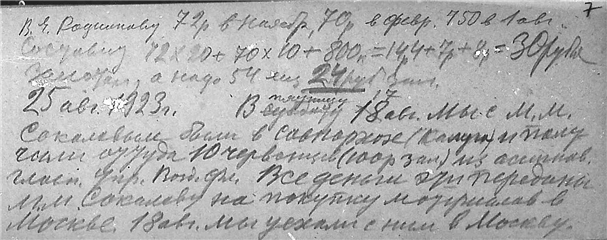 7
В. Я. Родионову 72р в ноябр, 70р в февр. 750 в 1 авг.
Составит 72 × 20 + 70 × 10 + 800 = 144 + 7р + 8р = 30 руб
а надо 54 24 руб зол.
25 авг. 1923 г. В пятницу 17 18 авг. мы с М. М.
Соколовым были в Совнархозе (Калуга) и полу
чили оттуда 10 червонцев (100р зол) из ассигнов.
Все деньги переданы
М. М. Соколову на покупку материалов в
Москве. 18 авг. мы уехали с ним в Москву.